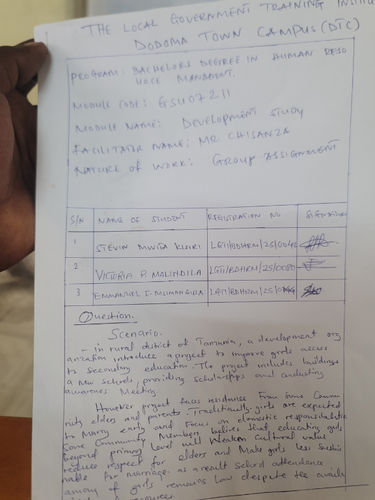 THE LOCAL GOVERNMENT TRAINING INSTI
DODOMA TOWN CAMPUS (DTC)
PROGRAM: BACHELORS DEGREE IN HUMAN RESO
URCE MANAGMENT.
MODULE CODE: GSU07211
MODULE NAME: DEVELOPMENT STUDY
FACILITATOR NAME: MR CHISANZA
NATURE OF WORK: GROUP ASSIGNMENT
S/N NAME OF STUDENT REGISTRATION NO SIGNATURE
1 STEVIN KLIRI LGTI/BDHRM/25/
2 VICTORIA P. MALINDILA LGTI/BDHRM/25/
3 EMMANUEL LGTI/BDHRM/25/
Question.
Scenario.
- In rural district of Tanzania, a development org
anisation introduce a project to improve girls access
to Secondary education. The project includes buildings
a New Schools, providing Scholarships and conducting
awareness Meeting.
However project faces resistance From Some Commu
nity elders and parents. Traditionally girls are expected
to Marry early and Focus on domestic responsibilities
Some Community Members believes that educating girls
beyond primary level will Weaken Cultural value
reduces respect for elders and Make girls less
For Marriage. as a result School attendance
among girls remains low despite the